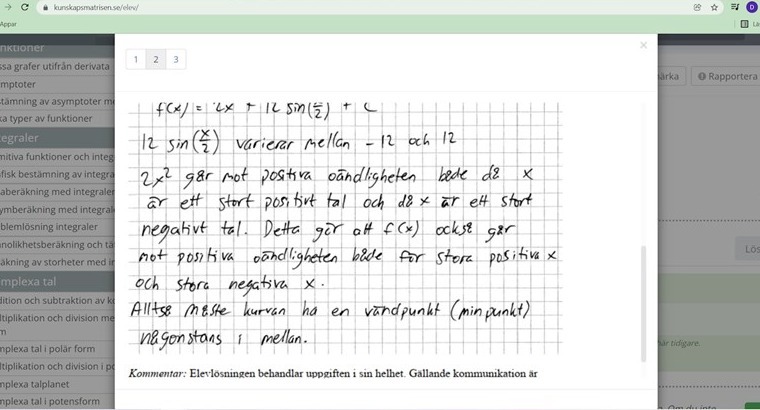 kunskapsmatrisen.se/elev/
Appar
nktioner
ssa grafer utifrån derivata
mptoter
stämning av asymptoter me
ka typer av funktioner
tegraler
mitiva funktioner och integ
fisk bestämning av integra
aberäkning med integraler
ymberäkning med integral
blemlösning integraler
nnolikhetsberäkning och tä
äkning av storheter med in
mplexa tal
dition och subtraktion av ko
ltiplikation och division me
m
mplexa tal i polär form
ltiplikation och division i po
mplexa talplanet
mplexa tal i potensform
1 2 3
×
ärka
Rapportera
Lös
här tidigare.
12 sin(x/2) varierar mellan -12 och 12
2x² går mot positiva oändligheten både då x
är ett stort positivt tal och då x är ett stort
negativt tal. Detta gör att f(x) också går
mot positiva oändligheten både för stora positiva x
och stora negativa x.
Alltså måste kurvan ha en vändpunkt (minpunkt)
någonstans i mellan.
Kommentar: Elevlösningen behandlar uppgiften i sin helhet. Gällande kommunikation är